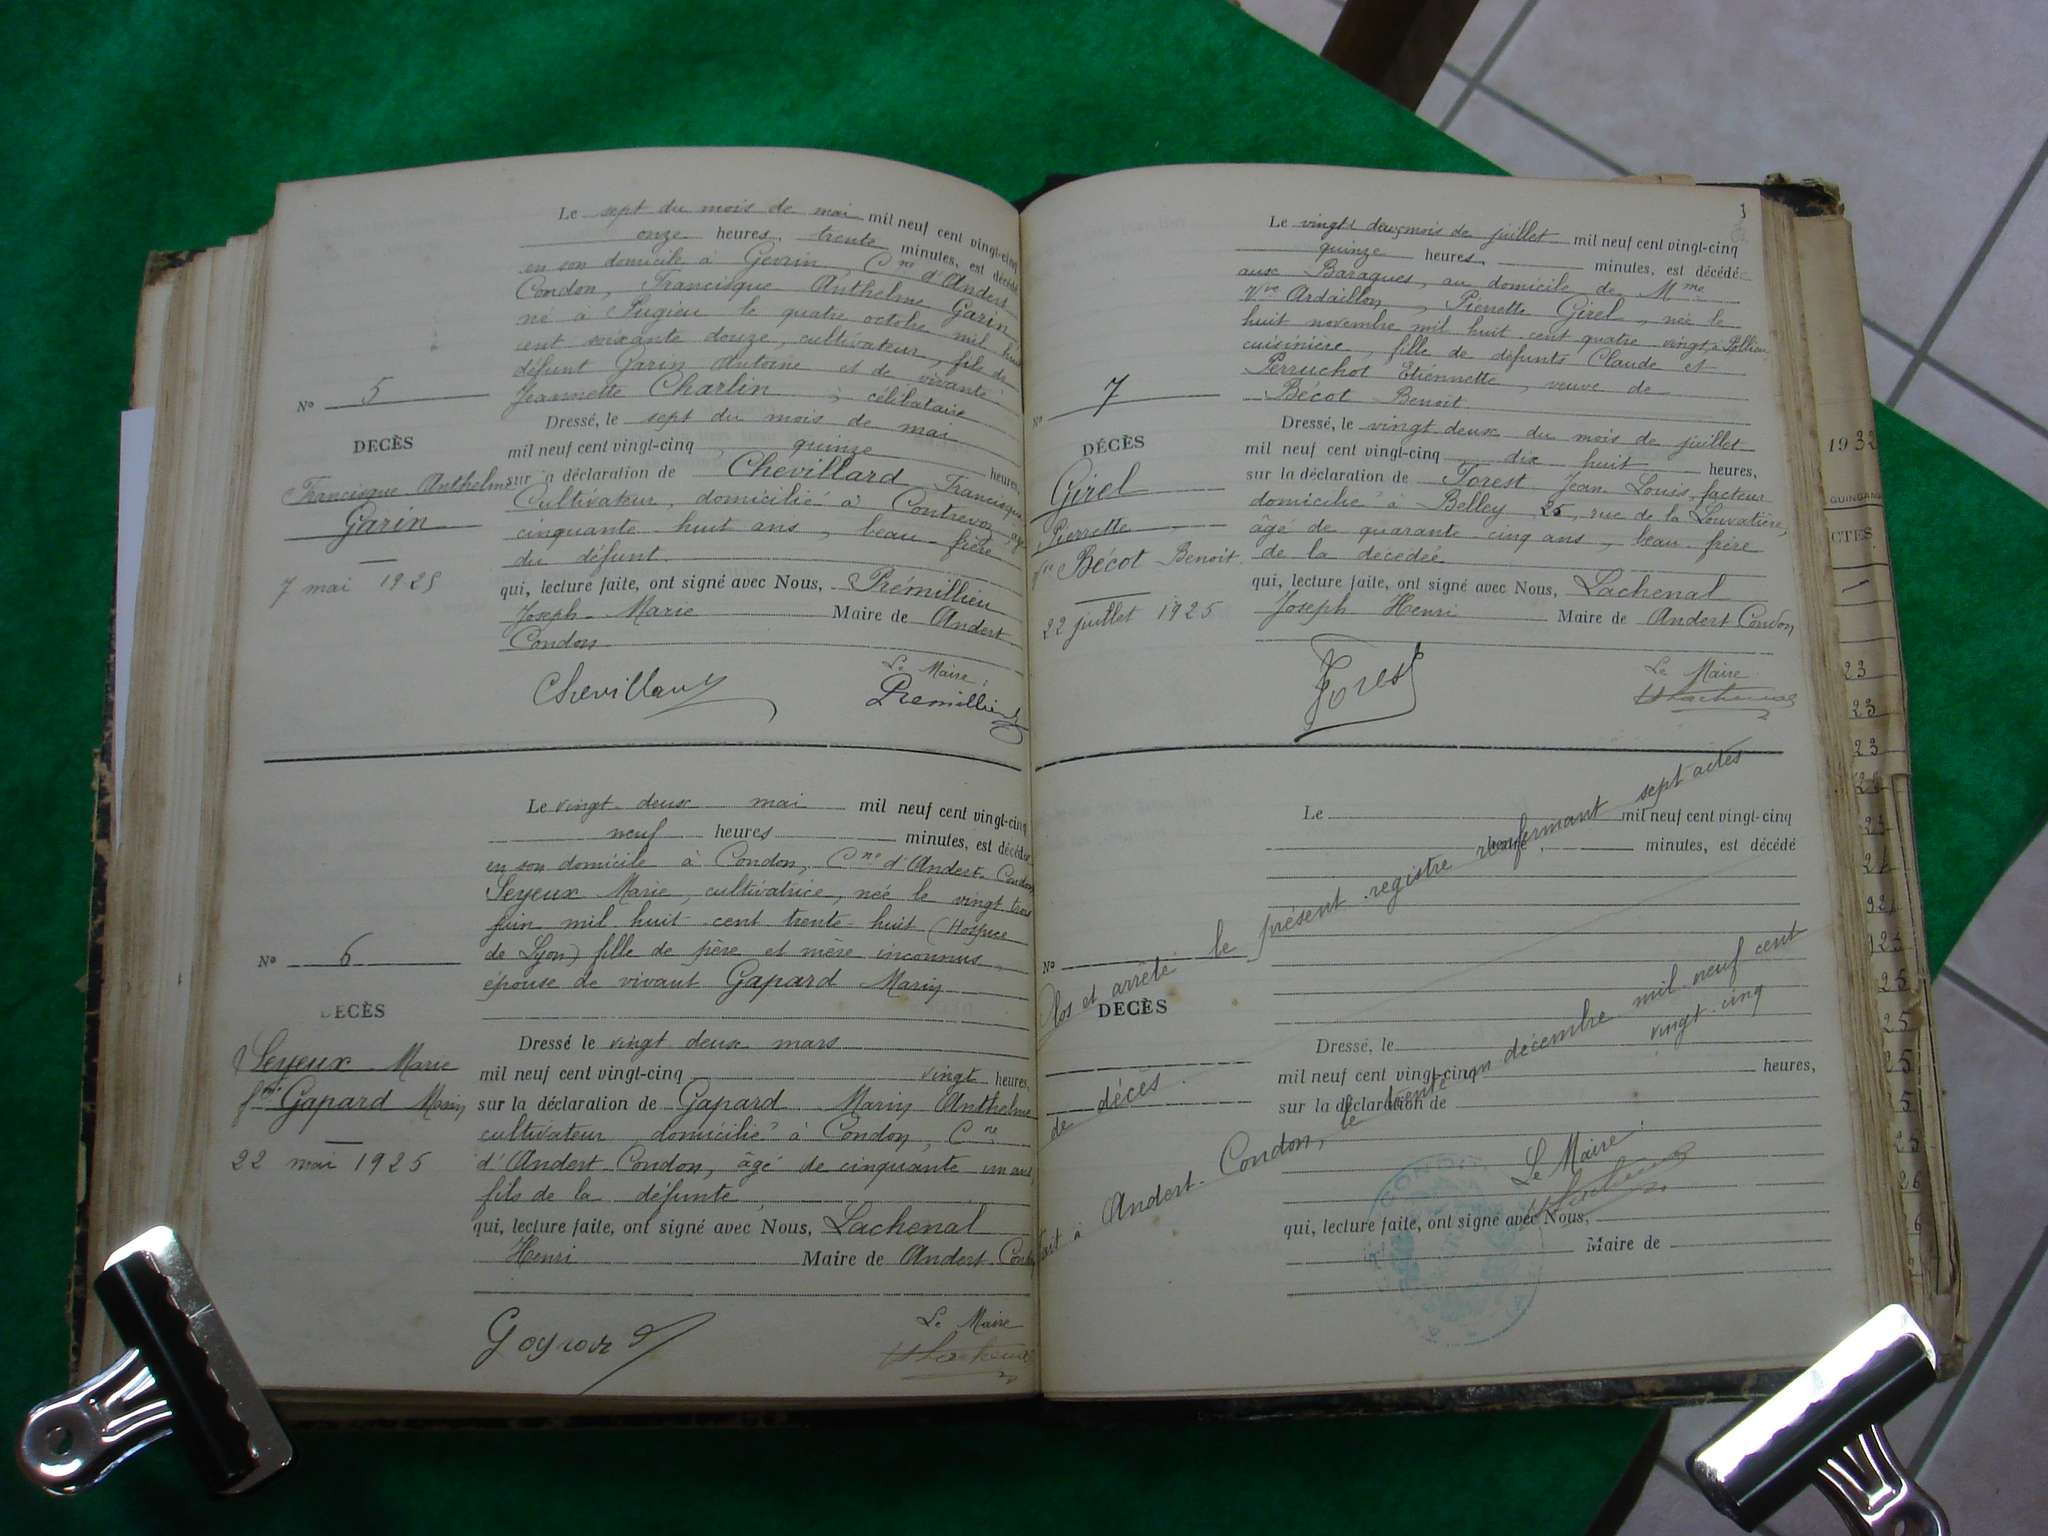 Le sept du mois de mai mil neuf cent vingt-cinq
onze heures, trente minutes, est décédé
en son domicile à Gevrin, Cne d'Andert
Condon, Francisque Anthelme Garin
né à Pugieu le quatre octobre mil huit
cent soixante douze, cultivateur, fils de
défunt Garin Antoine et de vivante
Jeannette Charlin, célibataire
Dressé, le sept du mois de mai
mil neuf cent vingt-cinq quinze heures,
sur a déclaration de Chevillard Francisque
Cultivateur, domicilié à Contrevoz
cinquante huit ans, beau-frère
du défunt
qui, lecture faite, ont signé avec Nous, Prémillieu
Joseph-Marie Maire de Andert
Condon
Le Maire:
Chevillard Premillieu
No 5
DECÈS
Francisque Anthelme
Garin
7 mai 1925
Le vingt-deux mai mil neuf cent vingt-cinq
neuf heures minutes, est décédée
en son domicile à Condon, Cne d'Andert-Condon
Seyeux Marie, cultivatrice, née le vingt trois
juin mil huit-cent trente-huit (Hospice
de Lyon) fille de père et mère inconnus,
épouse de vivant Gapard Mariy
Dressé le vingt deux mars
mil neuf cent vingt-cinq vingt heures,
sur la déclaration de Gapard Mariy Anthelme
cultivateur domicilié à Condon, Cne
d'Andert-Condon, âgé de cinquante un ans,
fils de la défunte
qui, lecture faite, ont signé avec Nous, Lachenal
Henri Maire de Andert-Condon
Le Maire
HLachenal
No 6
DECÈS
Seyeux Marie
fme Gapard Mariy
22 mai 1925
Le vingt deux mois de juillet mil neuf cent vingt-cinq
quinze heures, minutes, est décédé
aux Baragues, au domicile de Mme
Vve Ardaillon, Pierrette Girel, née le
huit novembre mil huit cent quatre vingt, à Pollieu,
cuisinière, fille de défunts Claude et
Perruchot Etiennette, veuve de
Bécot Benoit
Dressé, le vingt deux du mois de juillet
mil neuf cent vingt-cinq dix huit heures,
sur la déclaration de Forest Jean-Louis, facteur
domicilié à Belley, 25, rue de la Louvatière,
âgé de quarante-cinq ans, beau-frère
de la décédée
qui, lecture faite, ont signé avec Nous, Lachenal
Joseph Henri Maire de Andert Condon
Le Maire
Forest HLachenal
No 7
DÉCÈS
Girel
Pierrette
Vve Bécot Benoit
22 juillet 1925
Le mil neuf cent vingt-cinq
minutes, est décédé
No
DECÈS
Dressé, le
mil neuf cent vingt-cinq heures,
sur la déclaration de
qui, lecture faite, ont signé avec Nous,
Maire de
Clos et arrêté le présent registre renfermant sept actes
de décès
Fait à Andert-Condon, le trente un décembre mil neuf cent
vingt-cinq
Le Maire:
HLachenal
1932
CTES
23
23
23